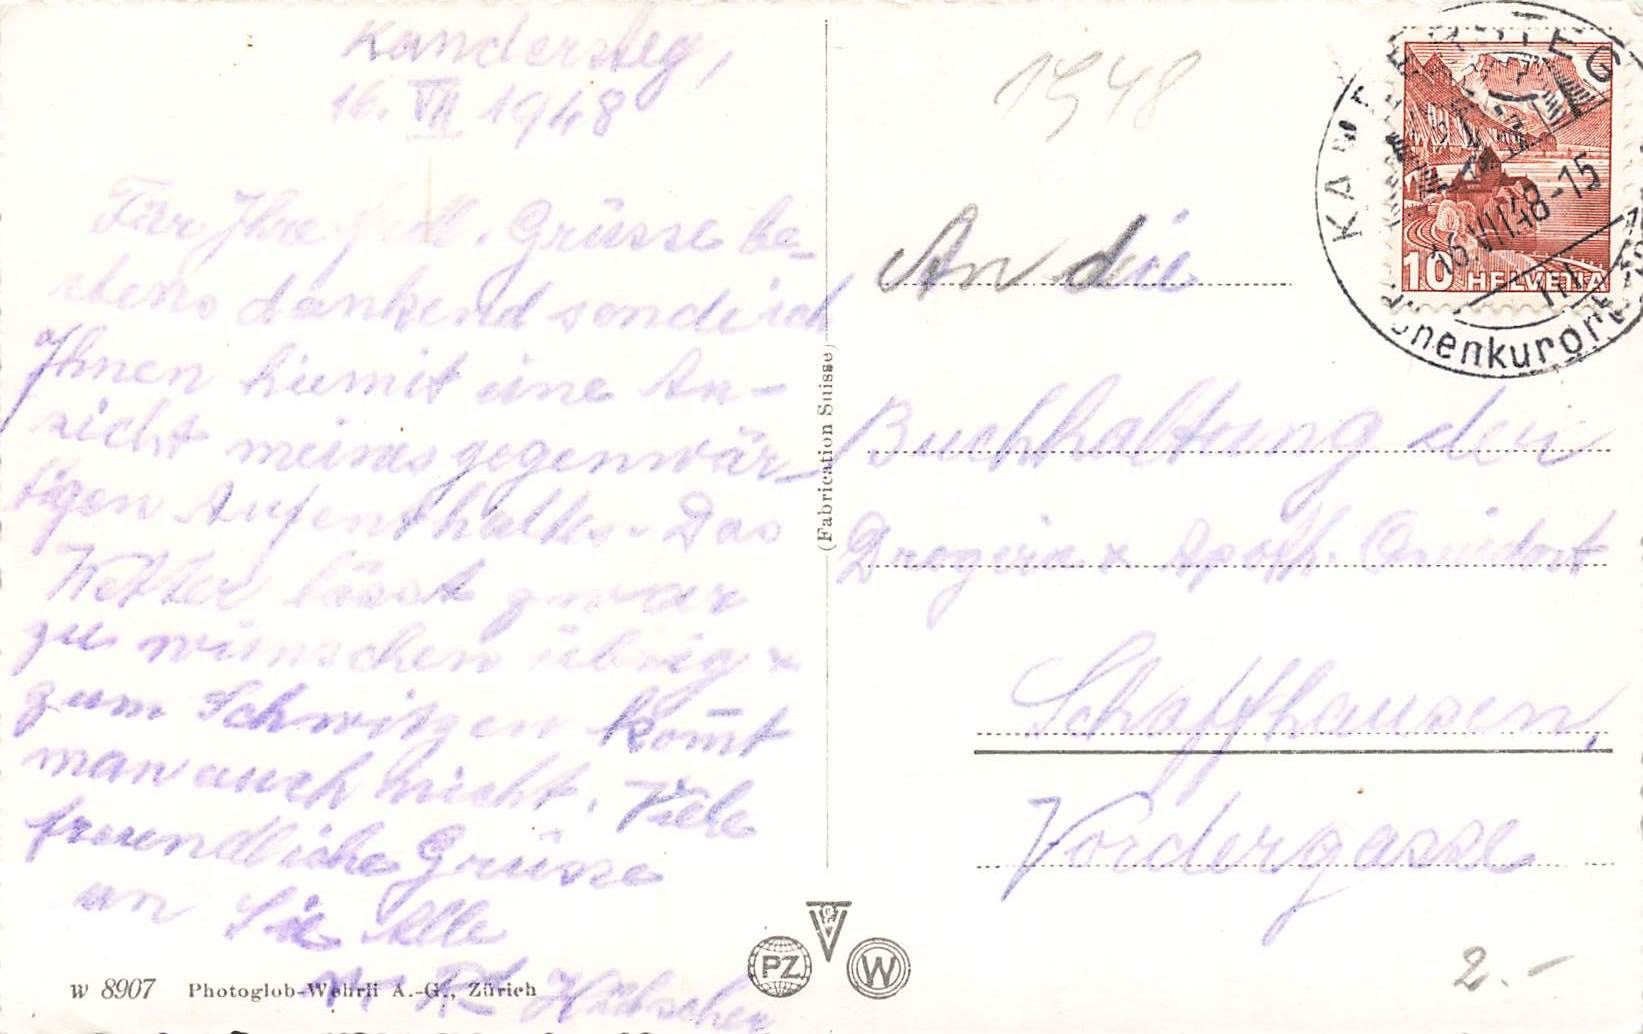 Kandersteg,
16. VII 1948
Für Ihre frdl. Grüsse be-
stens dankend sende ich
Ihnen hiemit eine An-
sicht meines gegenwär-
tigen Aufenthaltes. Das
Wetter lässt zwar
zu wünschen übrig &
zum Schwitzen kom̅t
man auch nicht. Viele
freundliche Grüsse
an Sie Alle
Hübscher
W 8907 Photoglob-Wehrli A.-G., Zürich
(Fabrication Suisse)
PZ
W
1948
KANDERSTEG
16.VII.48-15
Höhenkurort
10 HELVETIA
An die
Buchhaltung der
Drogerie & Apoth.
Schaffhausen,
Vordergasse
2.-